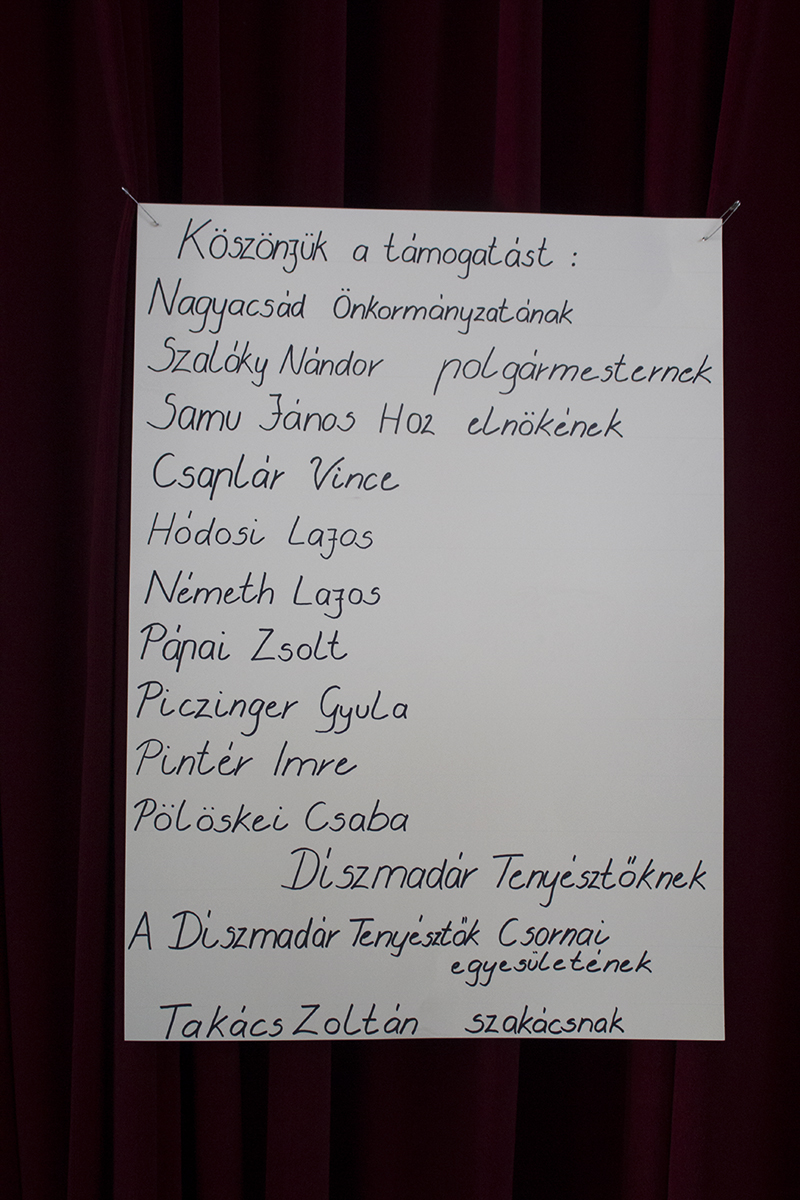 Köszönjük a támogatást :
Nagyacsád Önkormányzatának
Szaláky Nándor polgármesternek
Samu János Hoz elnökének
Csaplár Vince
Hódosi Lajos
Németh Lajos
Pápai Zsolt
Piczinger Gyula
Pintér Imre
Pölöskei Csaba
Díszmadár Tenyésztőknek
A Díszmadár Tenyésztők Csornai
egyesületének
Takács Zoltán szakácsnak